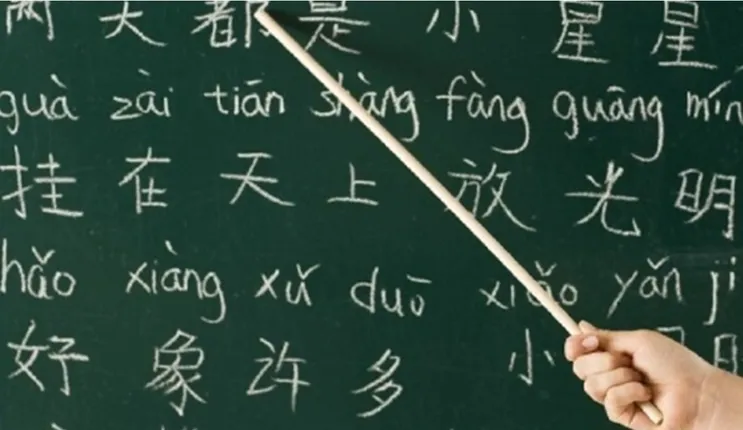 天都是小星星
guà zài tiān shàng fàng guāng mín
挂在天上放光明
hǎo xiàng xǔ duō xiǎo yǎn ji
好象许多小